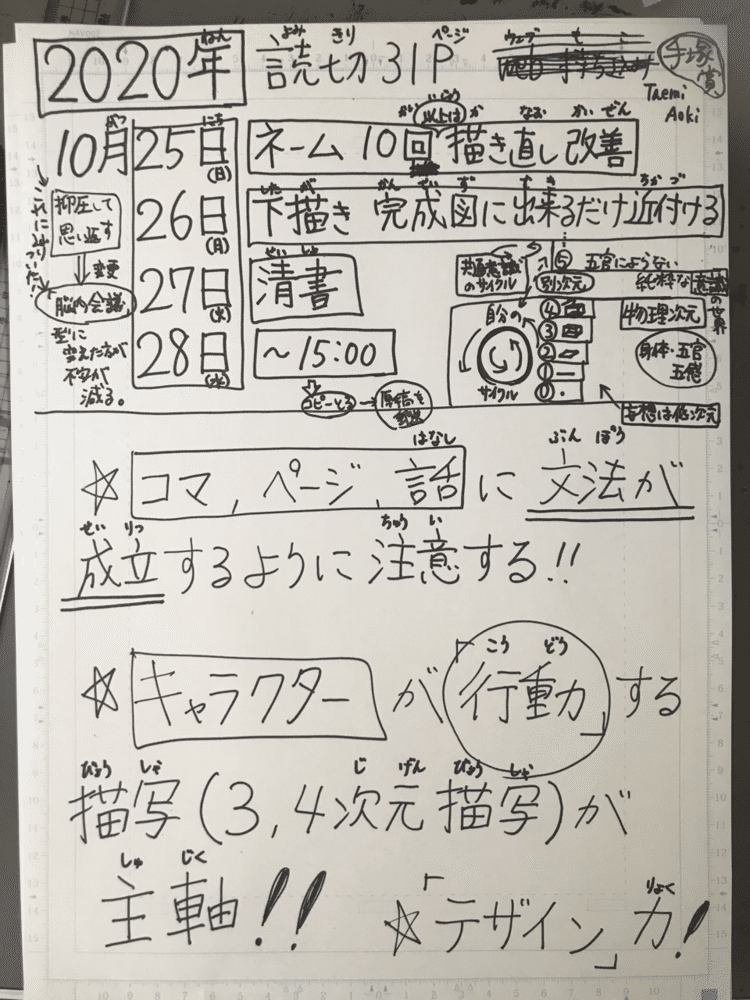 2020年 読切31P
手塚賞
Taemi Aoki
10月 25日(日) ネーム 10回以上は描き直し改善
26日(月) 下描き 完成図に出来るだけ近付ける
27日(火) 清書
28日(水) 〜15:00
コピーとる→原稿を
抑圧して思い返す
変更
脳内会議
型に
不安が
減る。
共通意識のサイクル
⑤ 五官によらない
別次元 純粋な意識の世界
自分の
サイクル
④
③
②
①
⓪
物理次元
身体・五官
五億
目標は低次元
☆ コマ, ページ, 話 に 文法が
成立するように注意する!!
☆ キャラクター が「行動力」する
描写(3,4次元描写)が
主軸!! ☆「デザイン」力!